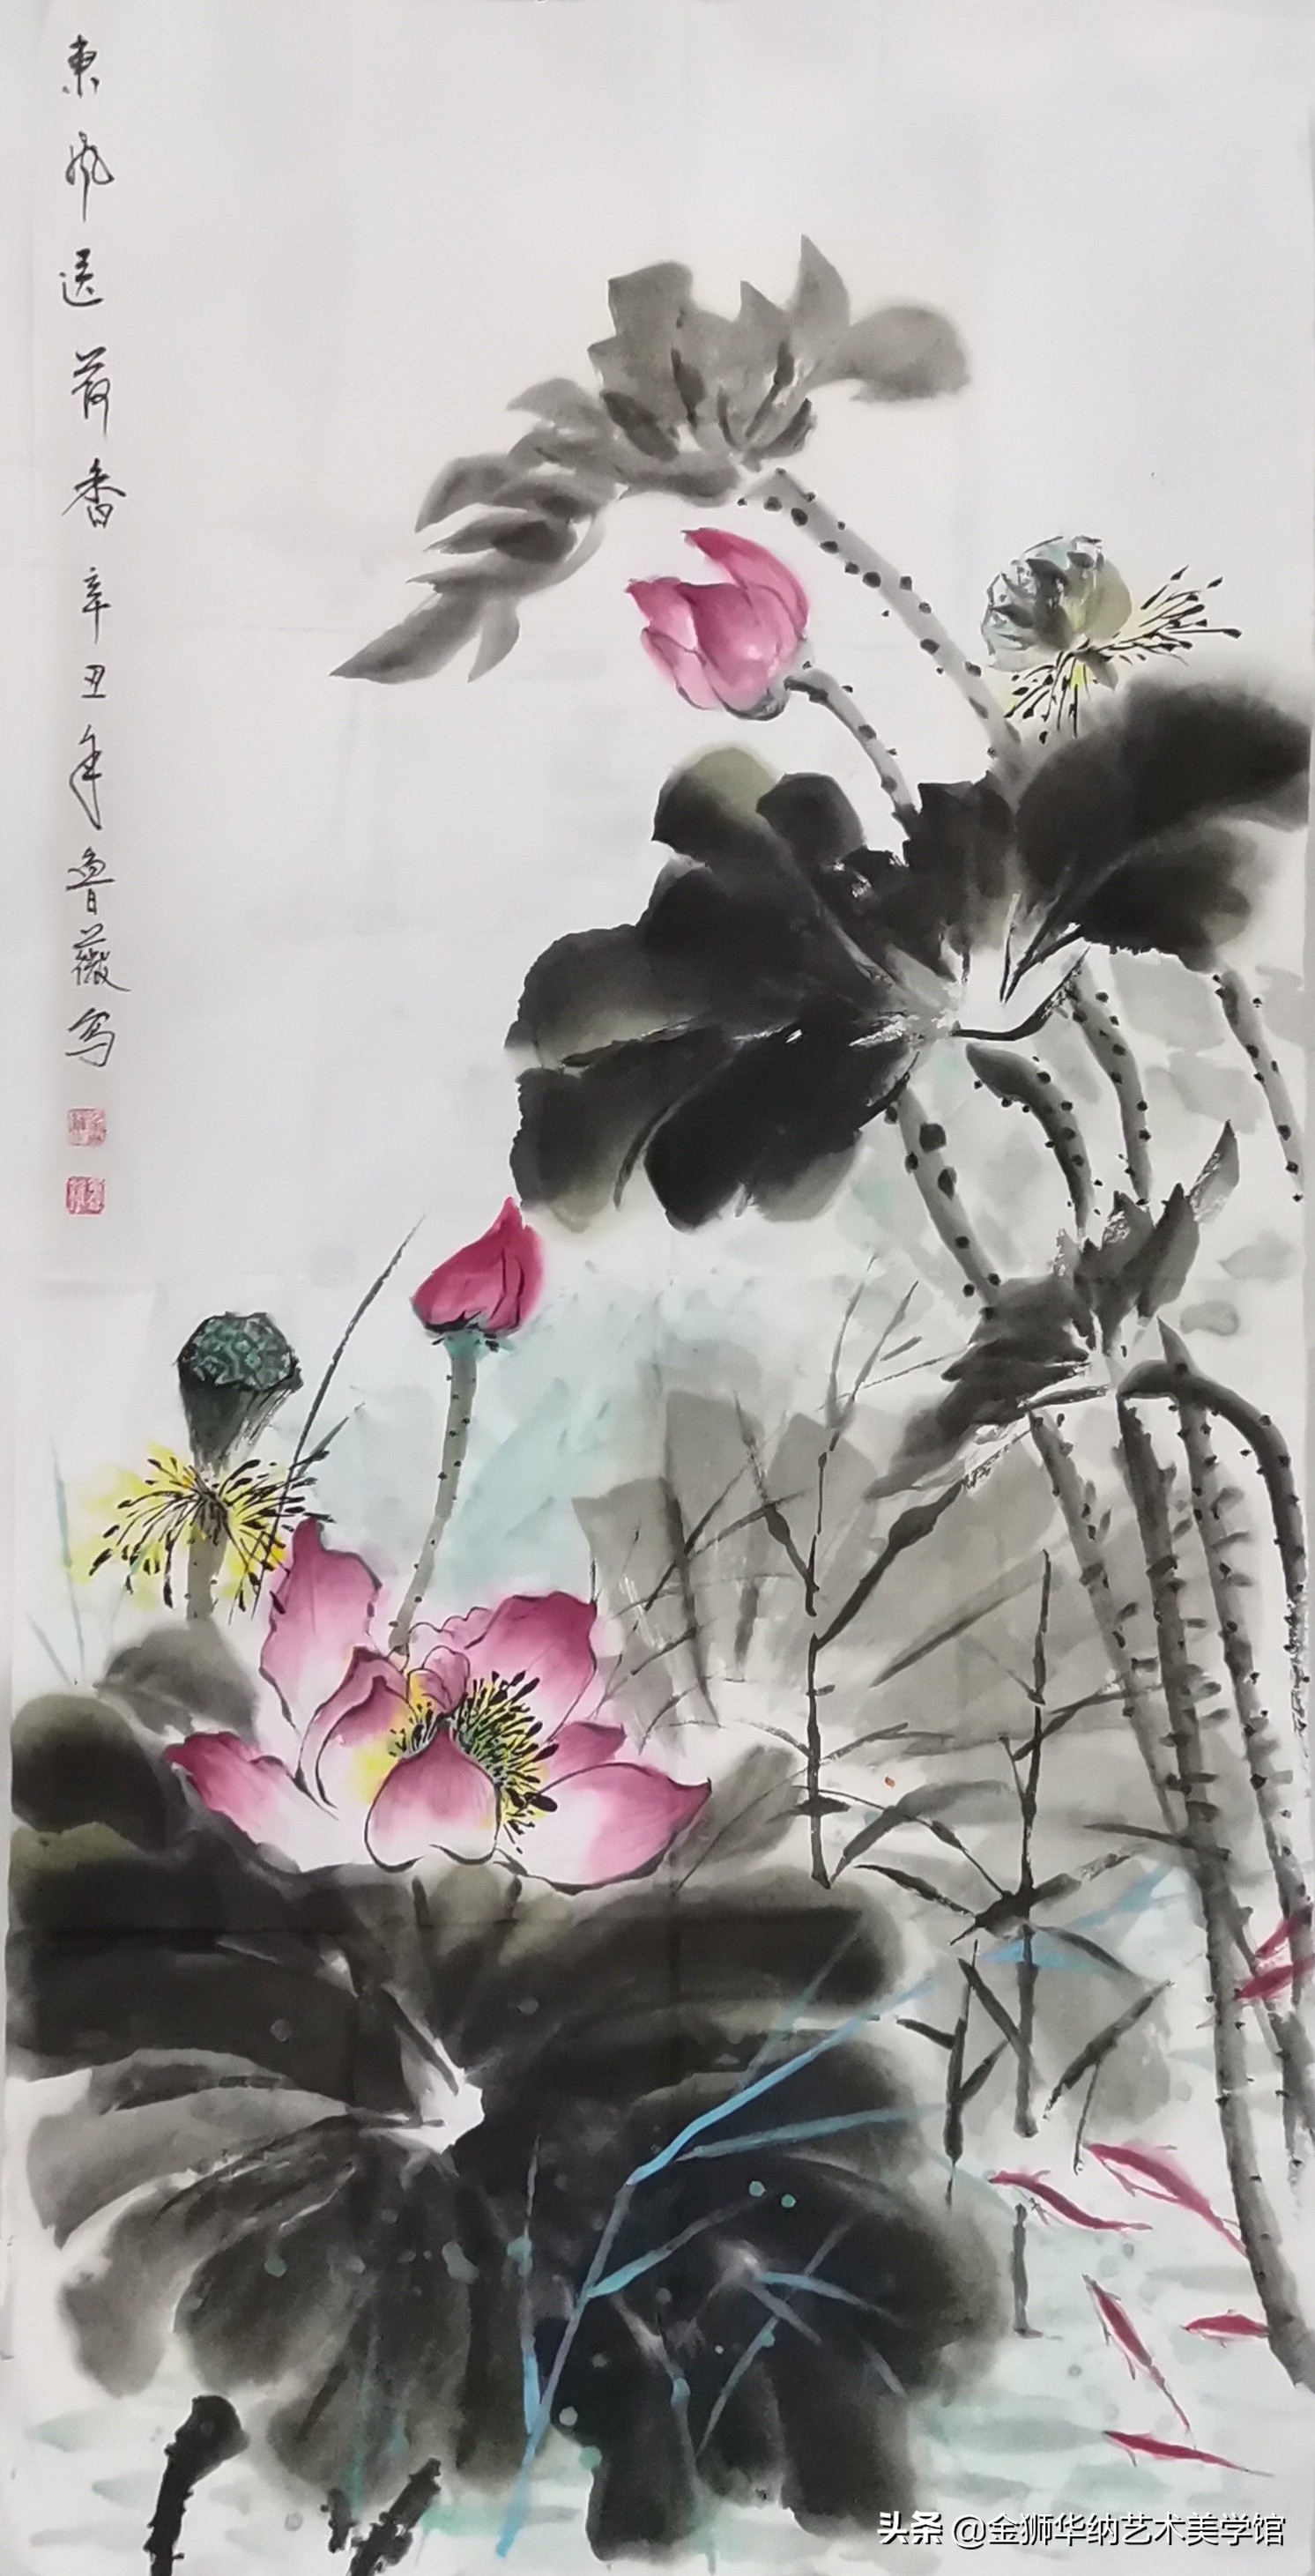 東風送荷香 辛丑年鲁薇写
头条 @金狮华纳艺术美学馆